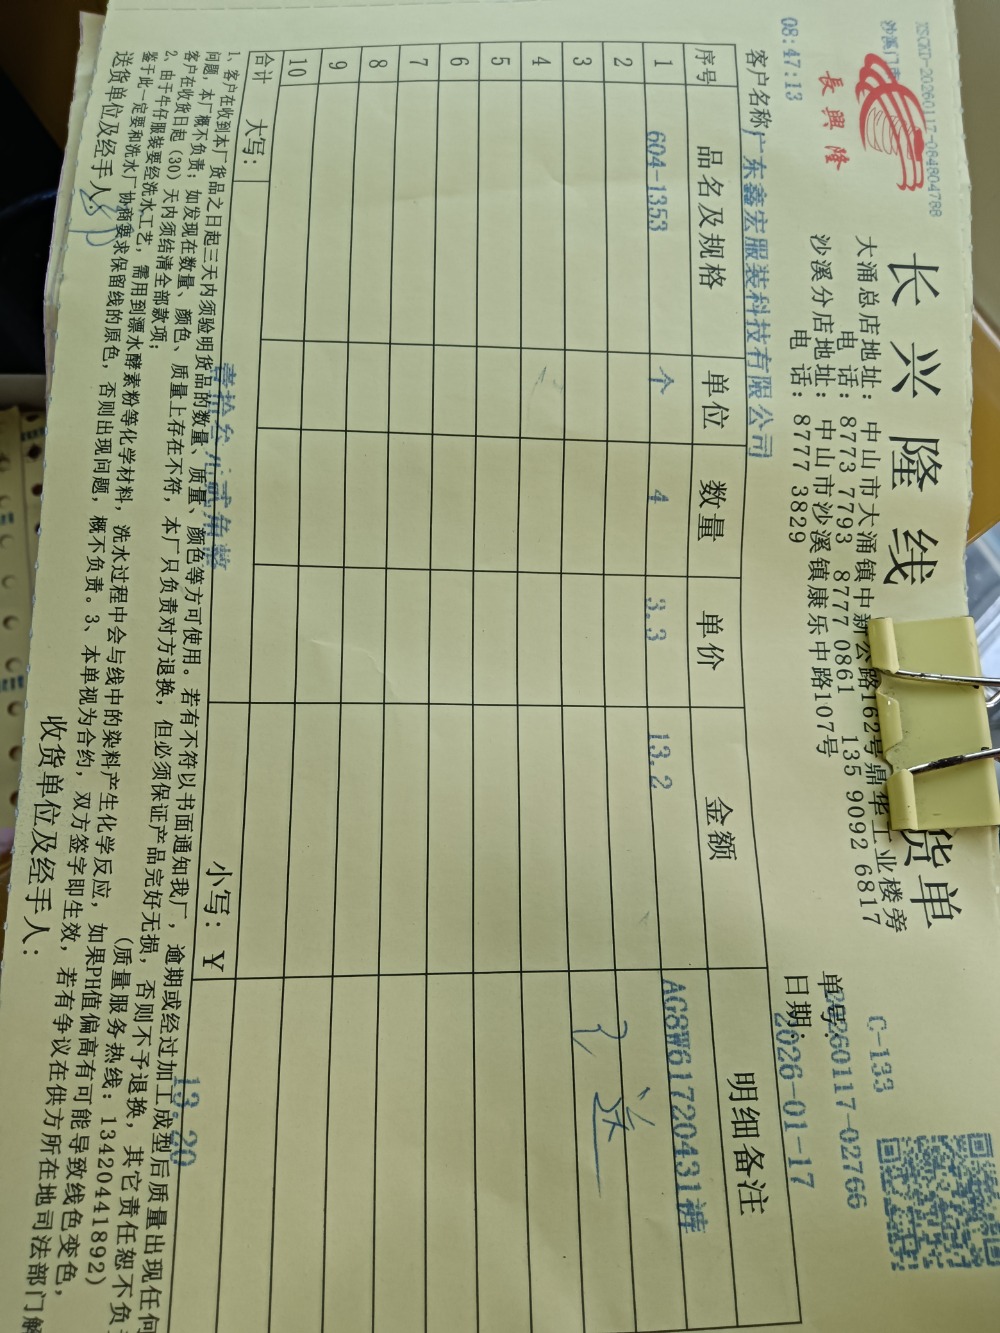 XSCKD-20260117-084804788
長興隆
08:47:13
长兴隆线
货单
大涌总店地址：中山市大涌镇中新公路162号鼎华工业楼旁
电话：8773 7793 8777 0861 135 9092 6817
沙溪分店地址：中山市沙溪镇康乐中路107号
电话：8777 3829
C-133
单号：20260117-02766
日期：2026-01-17
客户名称 广东鑫宏服装科技有限公司
序号 品名及规格 单位 数量 单价 金额 明细备注
1 604-1353 个 4 3.3 13.2 AG8W61720431裤
2
3
4
5
6
7
8
9
10
合计 大写： 壹拾叁元贰角整 小写：￥ 13.20
1、客户在收到本厂货品之日起三天内须验明货品的数量、质量、颜色等方可使用。若有不符以书面通知我厂，逾期或经过加工成型后质量出现任何
问题，本厂概不负责；如发现在数量、颜色、质量上存在不符，本厂只负责对方退换，但必须保证产品完好无损，否则不予退换，其它责任恕不负
客户在收货日起（30）天内须结清全部款项； （质量服务热线：13420441892）
2、由于牛仔服装要经洗水工艺，需用到漂水酵素粉等化学材料，洗水过程中会与线中的染料产生化学反应，如果PH值偏高有可能导致线色变色，
鉴于此一定要和洗水厂协商要求保留线的原色，否则出现问题，概不负责。3、本单视为合约，双方签字即生效，若有争议在供方所在地司法部门解
送货单位及经手人： 收货单位及经手人：